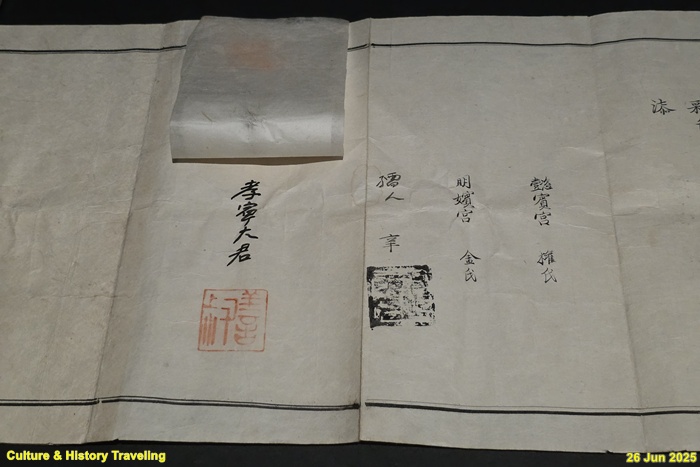 漆
懿賓宮 權氏
明嬪宮 金氏
孺人 辛
孝寧大君
善叔
Culture & History Traveling
26 Jun 2025